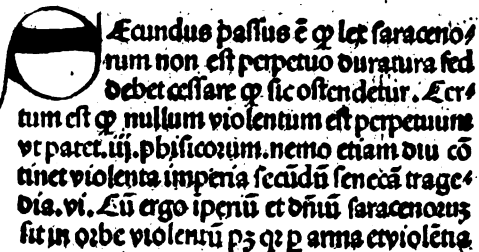 Secundus passus ē ꝙ lex saraceno⸗
rum non est perpetuo duratura sed
debet cessare ꝙ sic ostendetur. Cer⸗
tum est ꝙ nullum violentum est perpetuum
vt patet.iij.phisicorum.nemo etiam diu cō
tinet violenta imperia secūdū senecā trage⸗
dia.vi. Cū ergo iperiū et dn̄iū saracenoruꝫ
sit in orbe violentū pꝫ qꝛ ꝑ arma et violētia